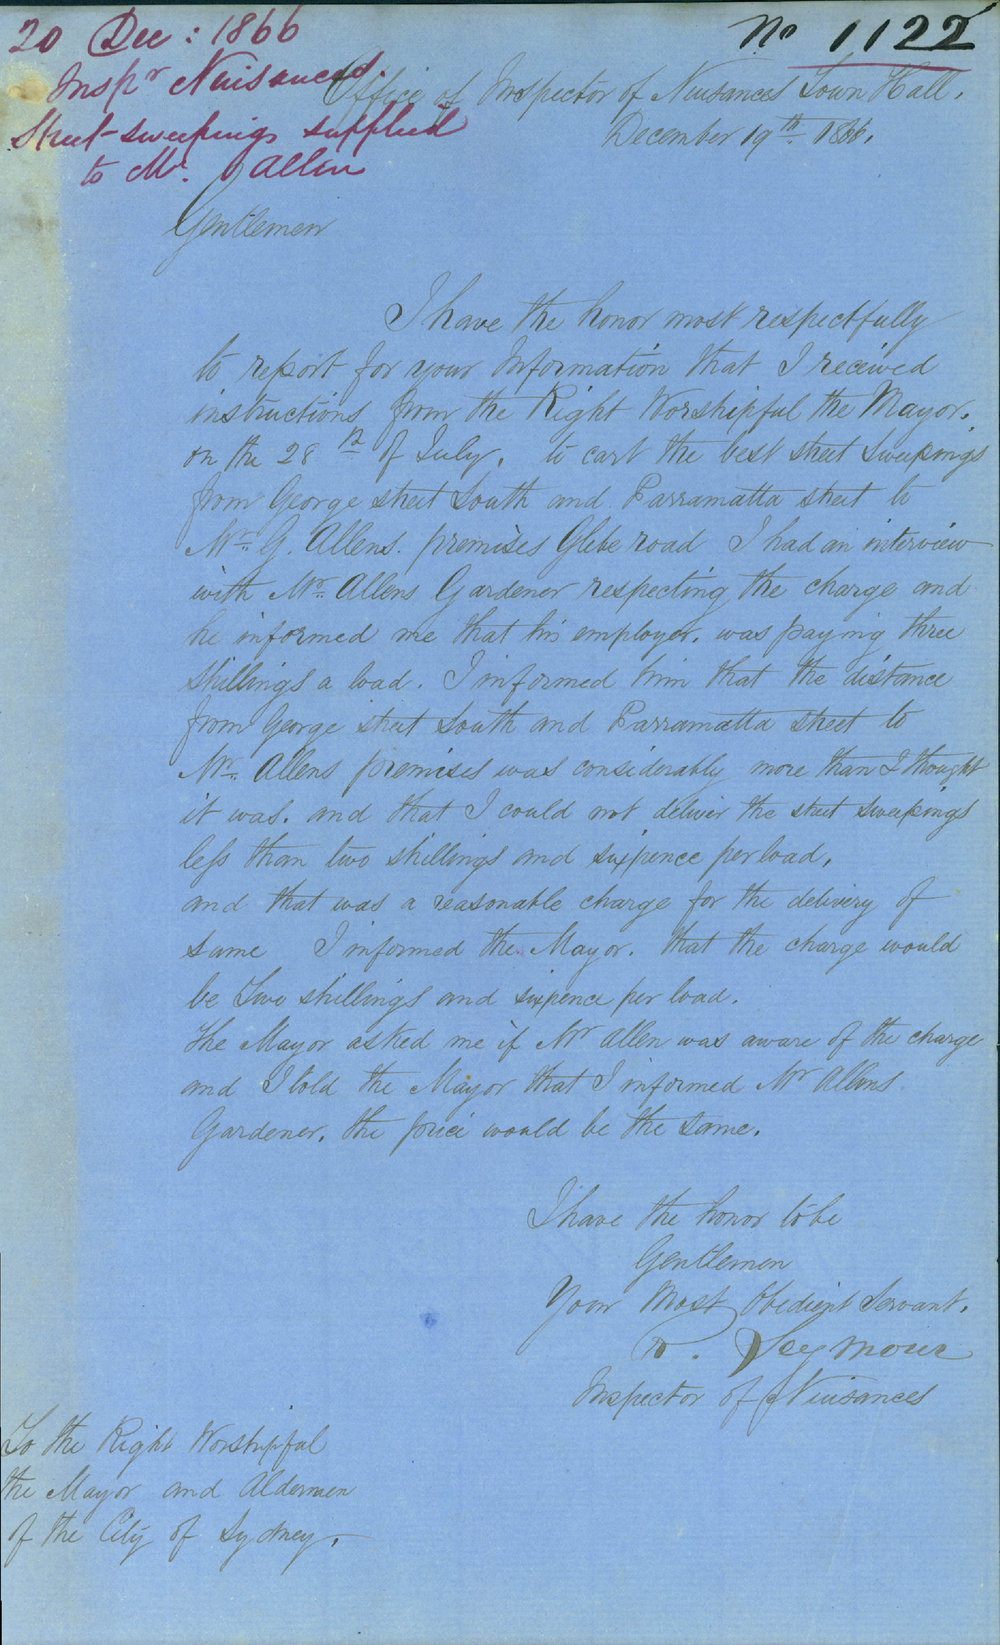 20 Dec: 1866
No 1122
Inspr Nuisances.
Street-sweepings supplied
to Mr. Allen
Office of Inspector of Nuisances Town Hall.
December 19th 1866.
Gentlemen
I have the honor most respectfully
to report for your Information that I received
instructions from the Right Worshipful the Mayor.
on the 28th of July. to cart the best street Sweepings
from George street South and Parramatta street to
Mr. G. Allens. premises Glebe road I had an interview
with Mr. Allens Gardener respecting the charge and
he informed me that his employer. was paying three
shillings a load. I informed him that the distance
from George street South and Parramatta street to
Mr. Allens premises was considerably more than I thought
it was. and that I could not deliver the street sweepings
less than two shillings and sixpence per load.
and that was a reasonable charge for the delivery of
same I informed the Mayor. that the charge would
be Two shillings and sixpence per load.
The Mayor asked me if Mr Allen was aware of the charge
and I told the Mayor that I informed Mr Allens
Gardener. the price would be the same.
I have the honor to be
Gentlemen
Your Most Obedient Servant.
R. Seymour
Inspector of Nuisances
To the Right Worshipful
the Mayor and Aldermen
of the City of Sydney.